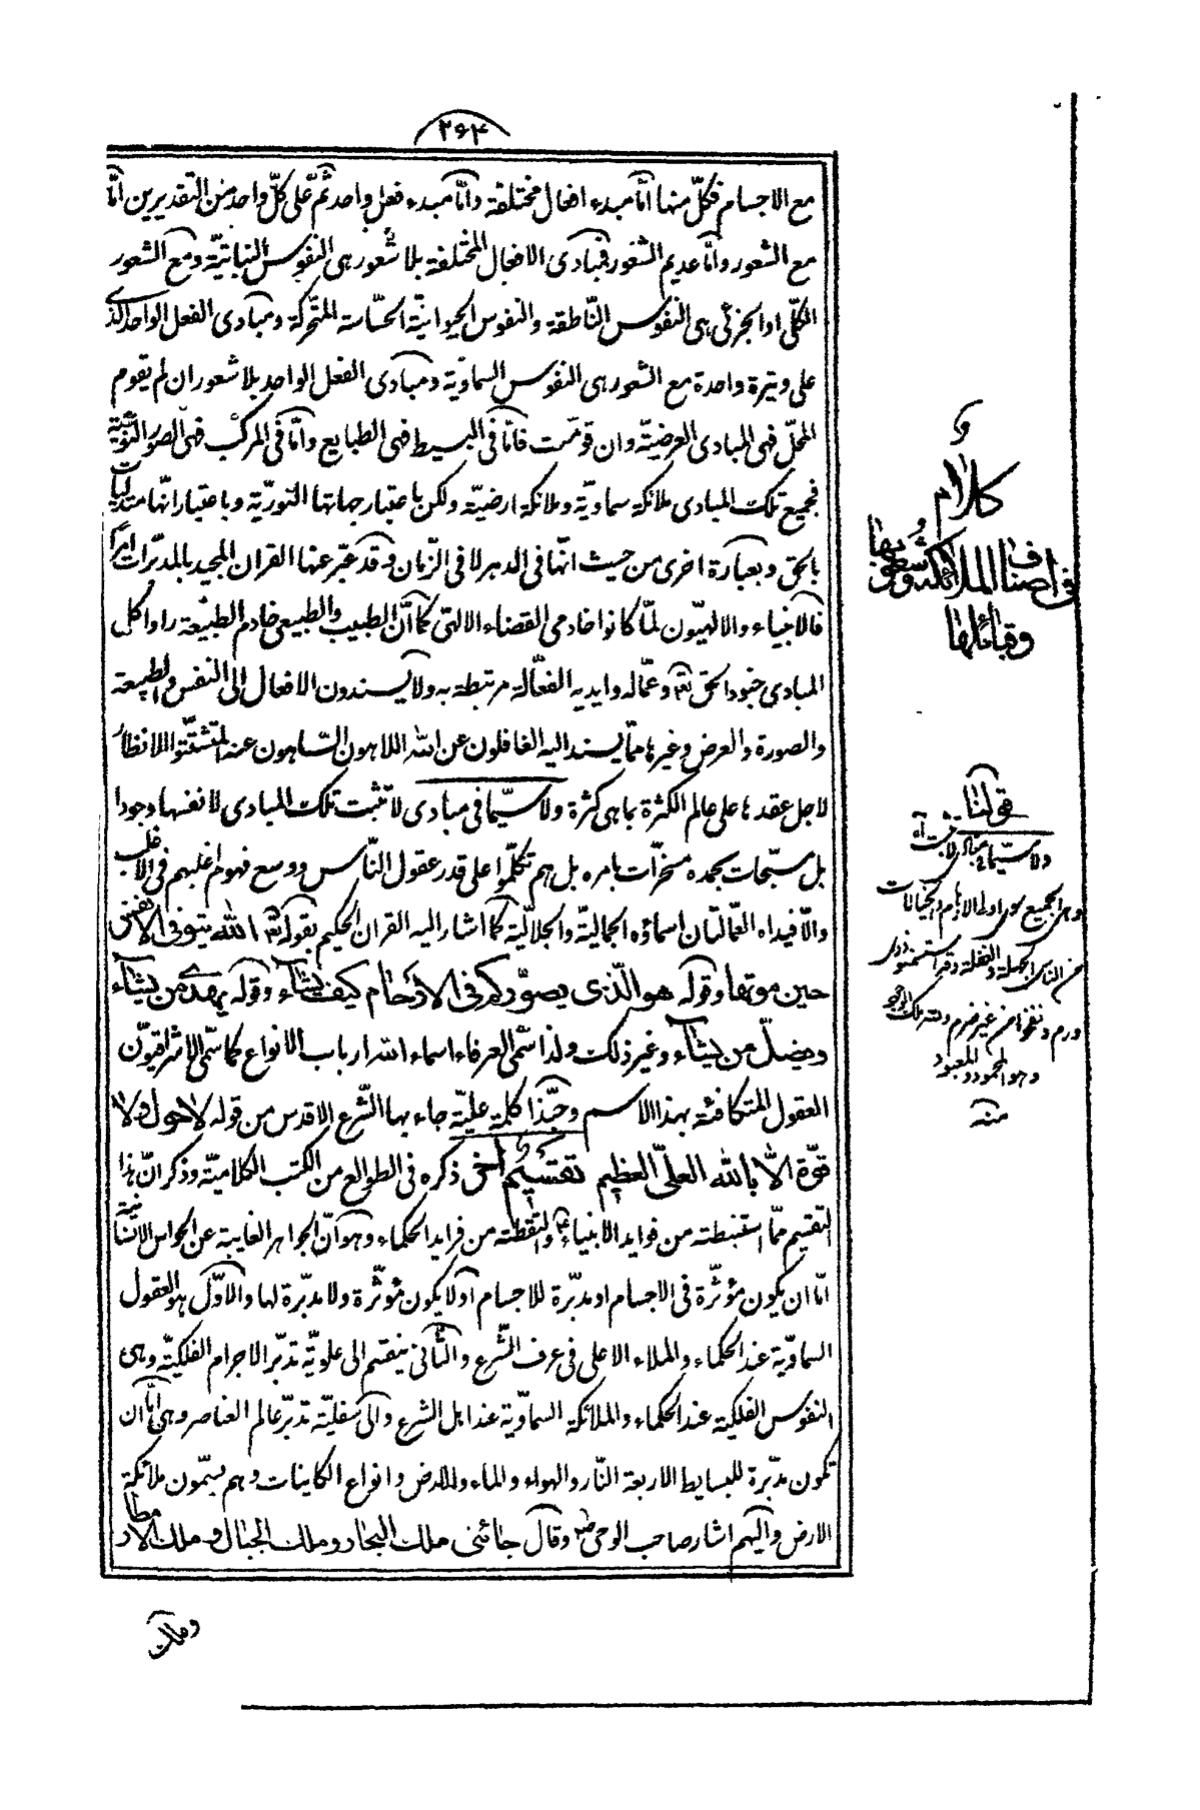 ۲۶۳
مع الاجسام فكلّ منها امّا مبدء افعال مختلفة وامّا مبدء فعل واحد ثمّ على كلّ واحد من التقديرين امّا
مع الشعور وامّا عديم الشعور فمبادى الافعال المختلفة بلا شعور هى النفوس النباتيّة ومع الشعور
الكلّى او الجزئى هى النفوس النّاطقة والنفوس الحيوانيّة الحسّاسة المتحرّكة ومبادى الفعل الواحد الذى
على وتيرة واحدة مع الشعور هى النفوس السماويّة ومبادى الفعل الواحد بلا شعور ان لم يقوم
المحلّ فهى المبادى العرضيّة وان قوّمت فامّا فى البسيط فهى الطبايع وامّا فى المركّب فهى الصور النوعيّة
فجميع تلك المبادى ملائكة سماويّة وملائكة ارضيّة ولكن باعتبار جهاتها النوريّة وباعتبار انّها متدليات
بالحق وبعبارة اخرى من حيث انّها فى الدهر لا فى الزّمان وقد عبّر عنها القران المجيد بالمدبّرات امرًا
فالانبياء والالهيّون لمّا كانوا خادمى القضاء الالهى كما انّ الطبيب والطبيعى خادم الطبيعة راوا كل
المبادى جنود الحق تعالى وعمّاله وايديه الفعّالة مرتبطة به ولا يسندون الافعال الى النفس والطبيعة
والصورة والعرض وغيرها ممّا يسند اليه الغافلون عن الله اللاهون السّاهون عنه المتشتّتوا الانظار
لاجل عقدها على عالم الكثرة بما هى كثرة ولا سيّما فى مبادى لا تثبت تلك المبادى لانفسها وجودا
بل مسبّحات بحمده مسخّرات بامره بل هم تكلّموا على قدر عقول النّاس ووسع فهوم اغلبهم فى الاغلب
والّا فيداه العمّالتان اسماؤه الجماليّة والجلاليّة كما اشار اليه القران الحكيم بقوله تعالى الله يتوفى الانفس
حين موتها وقوله هو الّذى يصوّركم فى الارحام كيف يشاء وقوله يهدى من يشاء
ويضلّ من يشاء وغير ذلك ولذا سمّى العرفاء اسماء الله ارباب الانواع كما سمّى الاشراقيّون
العقول المتكافئة بهذا الاسم وحبّذا كلمة عليّة جاء بها الشّرع الاقدس من قوله لا حول ولا
قوّة الّا بالله العلىّ العظيم تقسيم اخر ذكره فى الطوالع من الكتب الكلاميّة وذكر انّ هذا
التقسيم ممّا استنبطته من فوايد الانبياء والتقطته من فرايد الحكماء وهو انّ الجواهر الغايبة عن الحواس الانسانية
امّا ان يكون مؤثّرة فى الاجسام او مدبّرة للاجسام او لا يكون مؤثّرة ولا مدبّرة لها والاوّل هو العقول
السماويّة عند الحكماء والملاء الاعلى فى عرف الشّرع والثّانى ينقسم الى علويّة تدبّر الاجرام الفلكيّة وهى
النفوس الفلكية عند الحكماء والملائكة السماويّة عند اهل الشرع والى سفليّة تدبّر عالم العناصر وهى امّا ان
تكون مدبّرة للبسايط الاربعة النّار والهواء والماء والارض وانواع الكاينات وهم يسمّون ملائكة
الارض واليهم اشار صاحب الوحى وقال جائنى ملك البحار وملك الجبال وملك الامطار
وملك
كلام
فى اصناف الملائكة وشعوبها
وقبائلها
قولنا
ولا سيّما فى مبادى لا تثبت اه
وهو المحمود والمعبود
منه